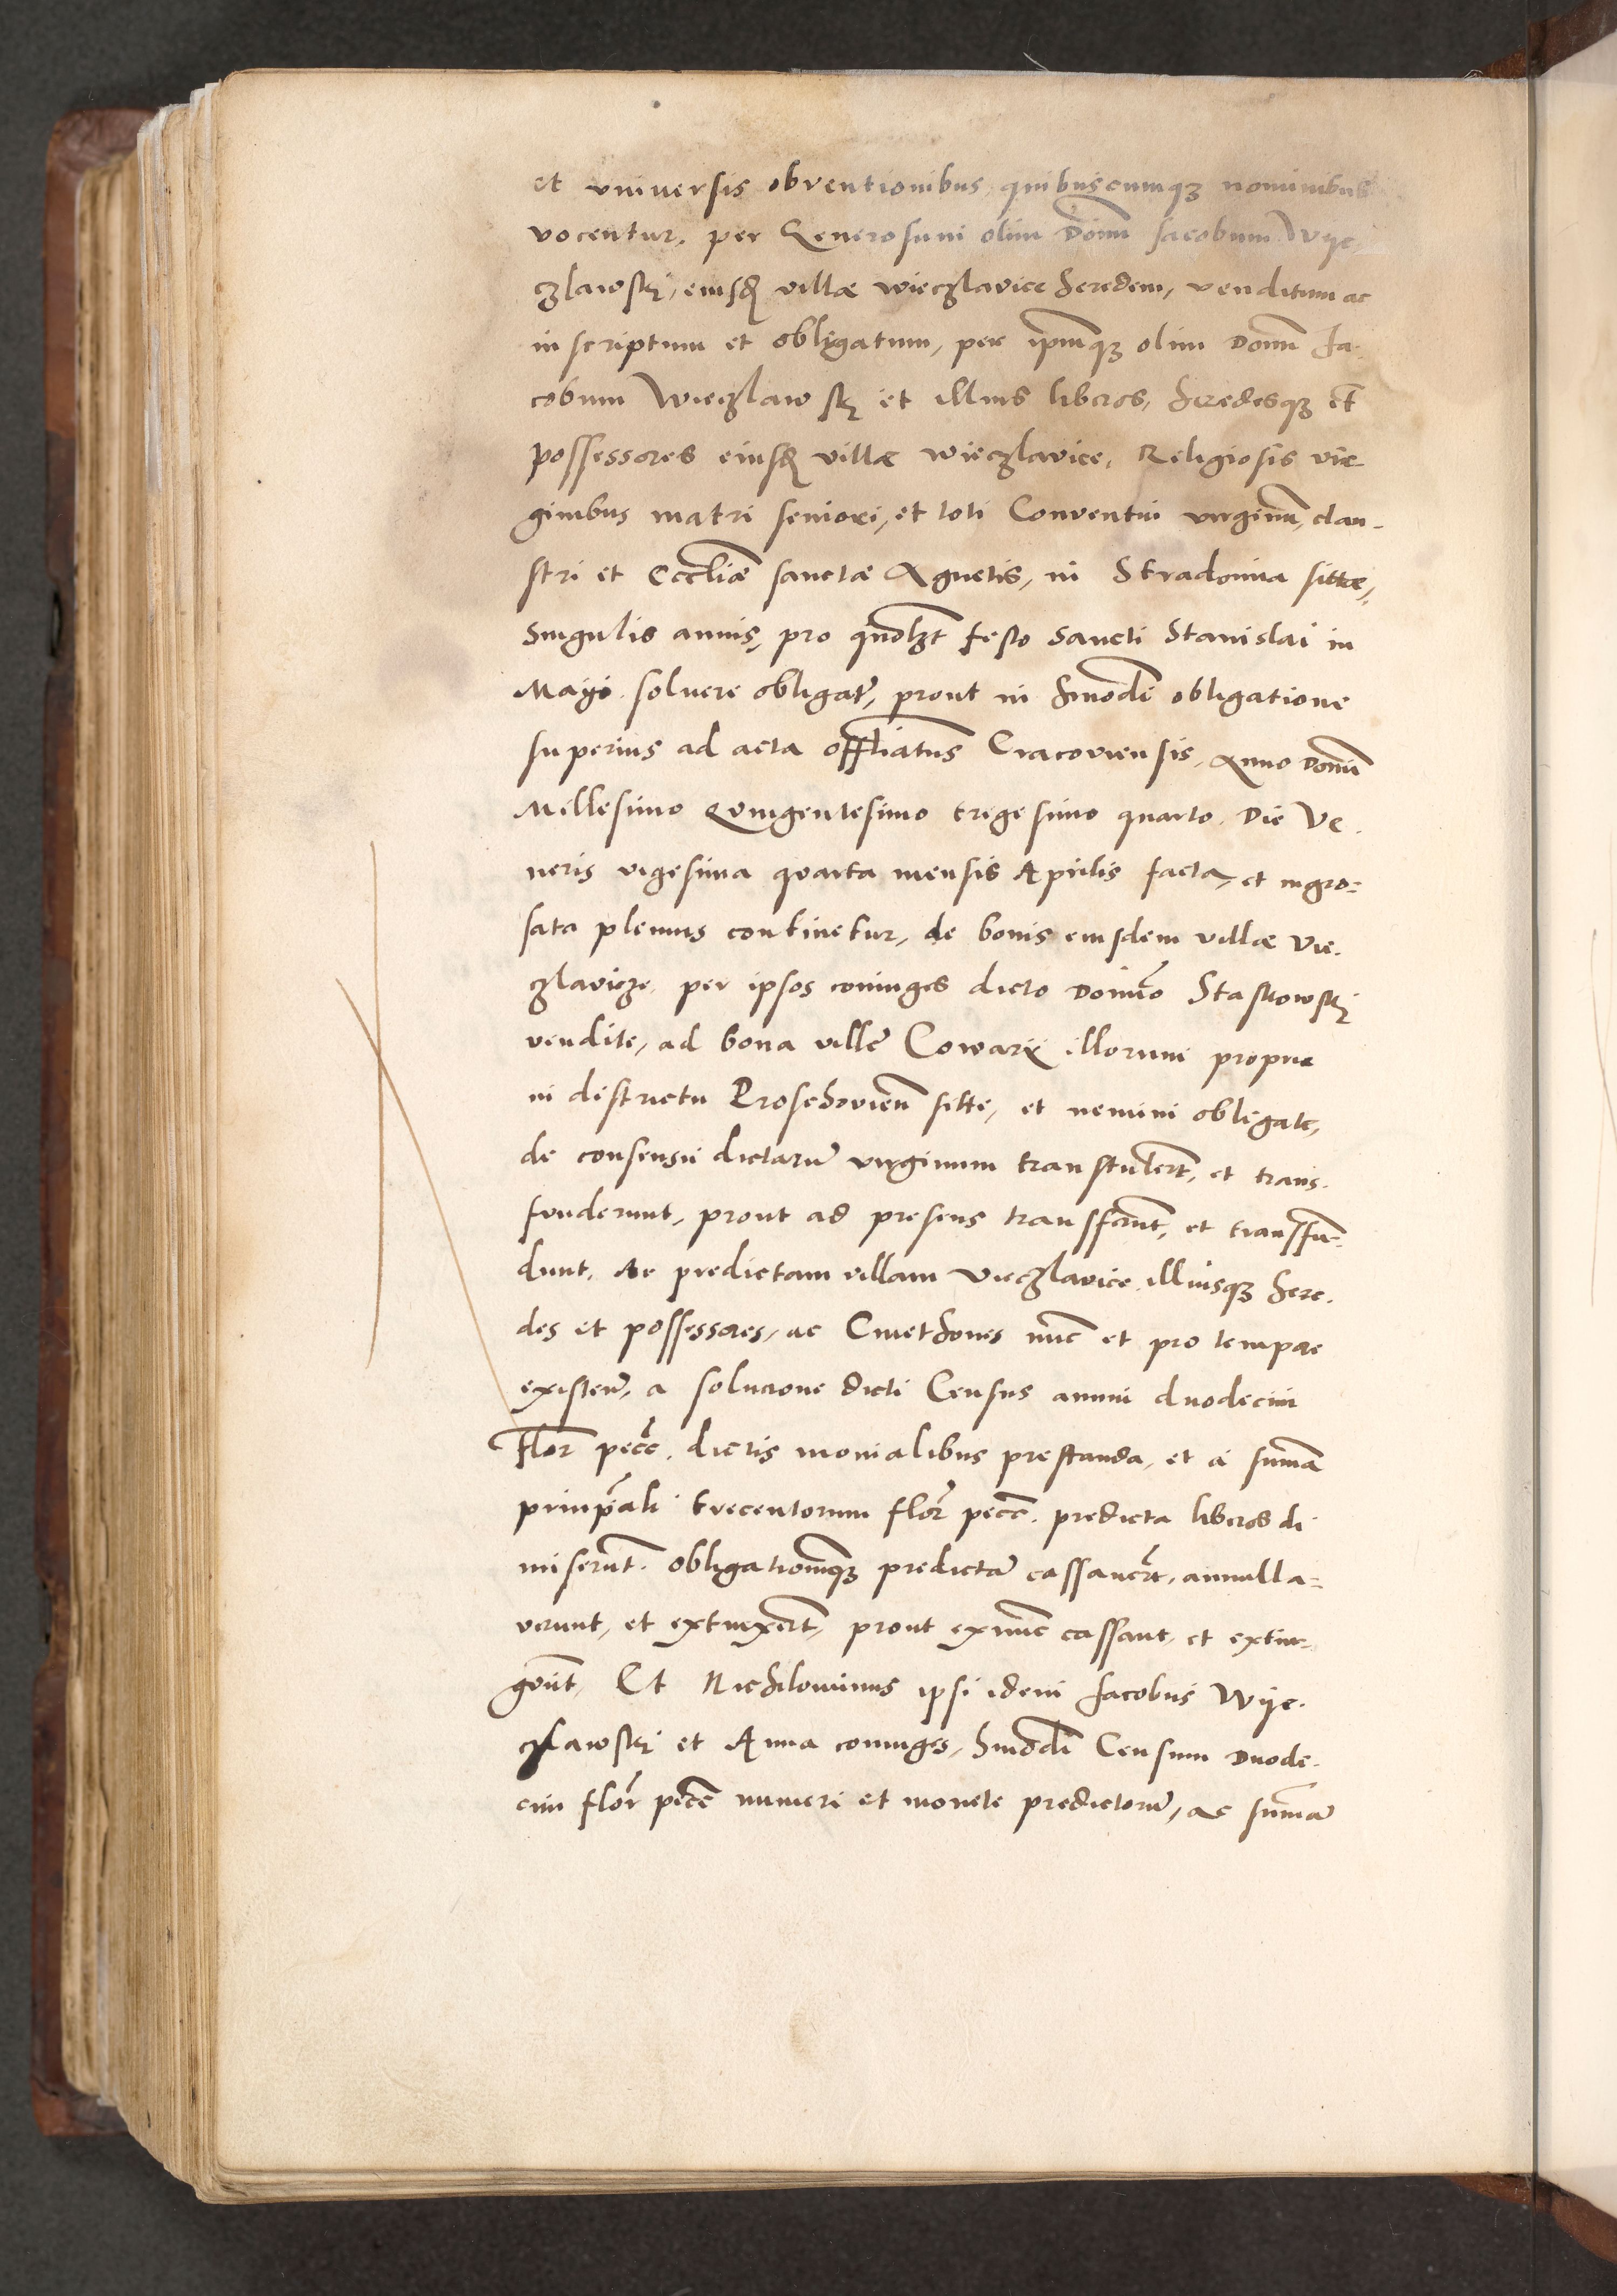 et vniuersis obuentionibus quibuscumqз nominibus
vocentur, per Generosum olim Dom̄ Jacobum Wye
czlawskj, eiusd villæ Wieczlavice heredem, venditum ac
inscriptum et obligatum, per ip̄mqз olim Dom̄ Ja-
cobum Wieczlawskj et illius liberos, heredesqз et
possessores eiusd villæ Wieczlavice, Religiosis vir-
ginibus matri seniori, et toti Conventui virginū, clau-
stri et Eccl̄iæ sanctæ Agnetis, in Stradomia sittæ,
Singulis annis, pro quolзt festo Sancti Stanislai in
Mayo soluere obligat̄, prout in hmōdi obligatione
superius ad acta offl̄iatus Cracoviensis, Anno Domī
Millesimo Quingentesimo trigesimo quarto, Die Ve-
neris vigesima quarta mensis Aprilis facta, et ingro-
sata plenius continetur, de bonis eiusdem villæ Vie-
czlavicze, per ipsos coniuges dicto Domīo Staskowskj
vendite, ad bona villē Cowari illorum proprie
in districtu Proschovieñ sitte, et nemini obligate,
de consensu dictarū virginum transtulert̄, et trans-
fuderunt, prout ad presens transferūt, et transfū-
dunt. Ac predictam villam Vieczlavice, illiusqз here-
des et possessores, ac Cmethones nūc et pro tempore
existeñ, a solucione dicti Census annui duodecim
flor̄ pecc̄. dictis monialibus prestanda, et a summa
principali trecentorum flor̄ pecc̄. predicta liberos di
miserūt. obligationemqз predictā cassauert̄, annulla-
verunt, et extinxert̄, prout exnūc cassant, et extin-
guūt, Et Nichilominus ipsi idem Jacobus Wye-
czlawskj et Anna coniuges, hmōdi Censum Duode-
cim flor̄ pecc̄ numeri et monete predictorū, ac summā